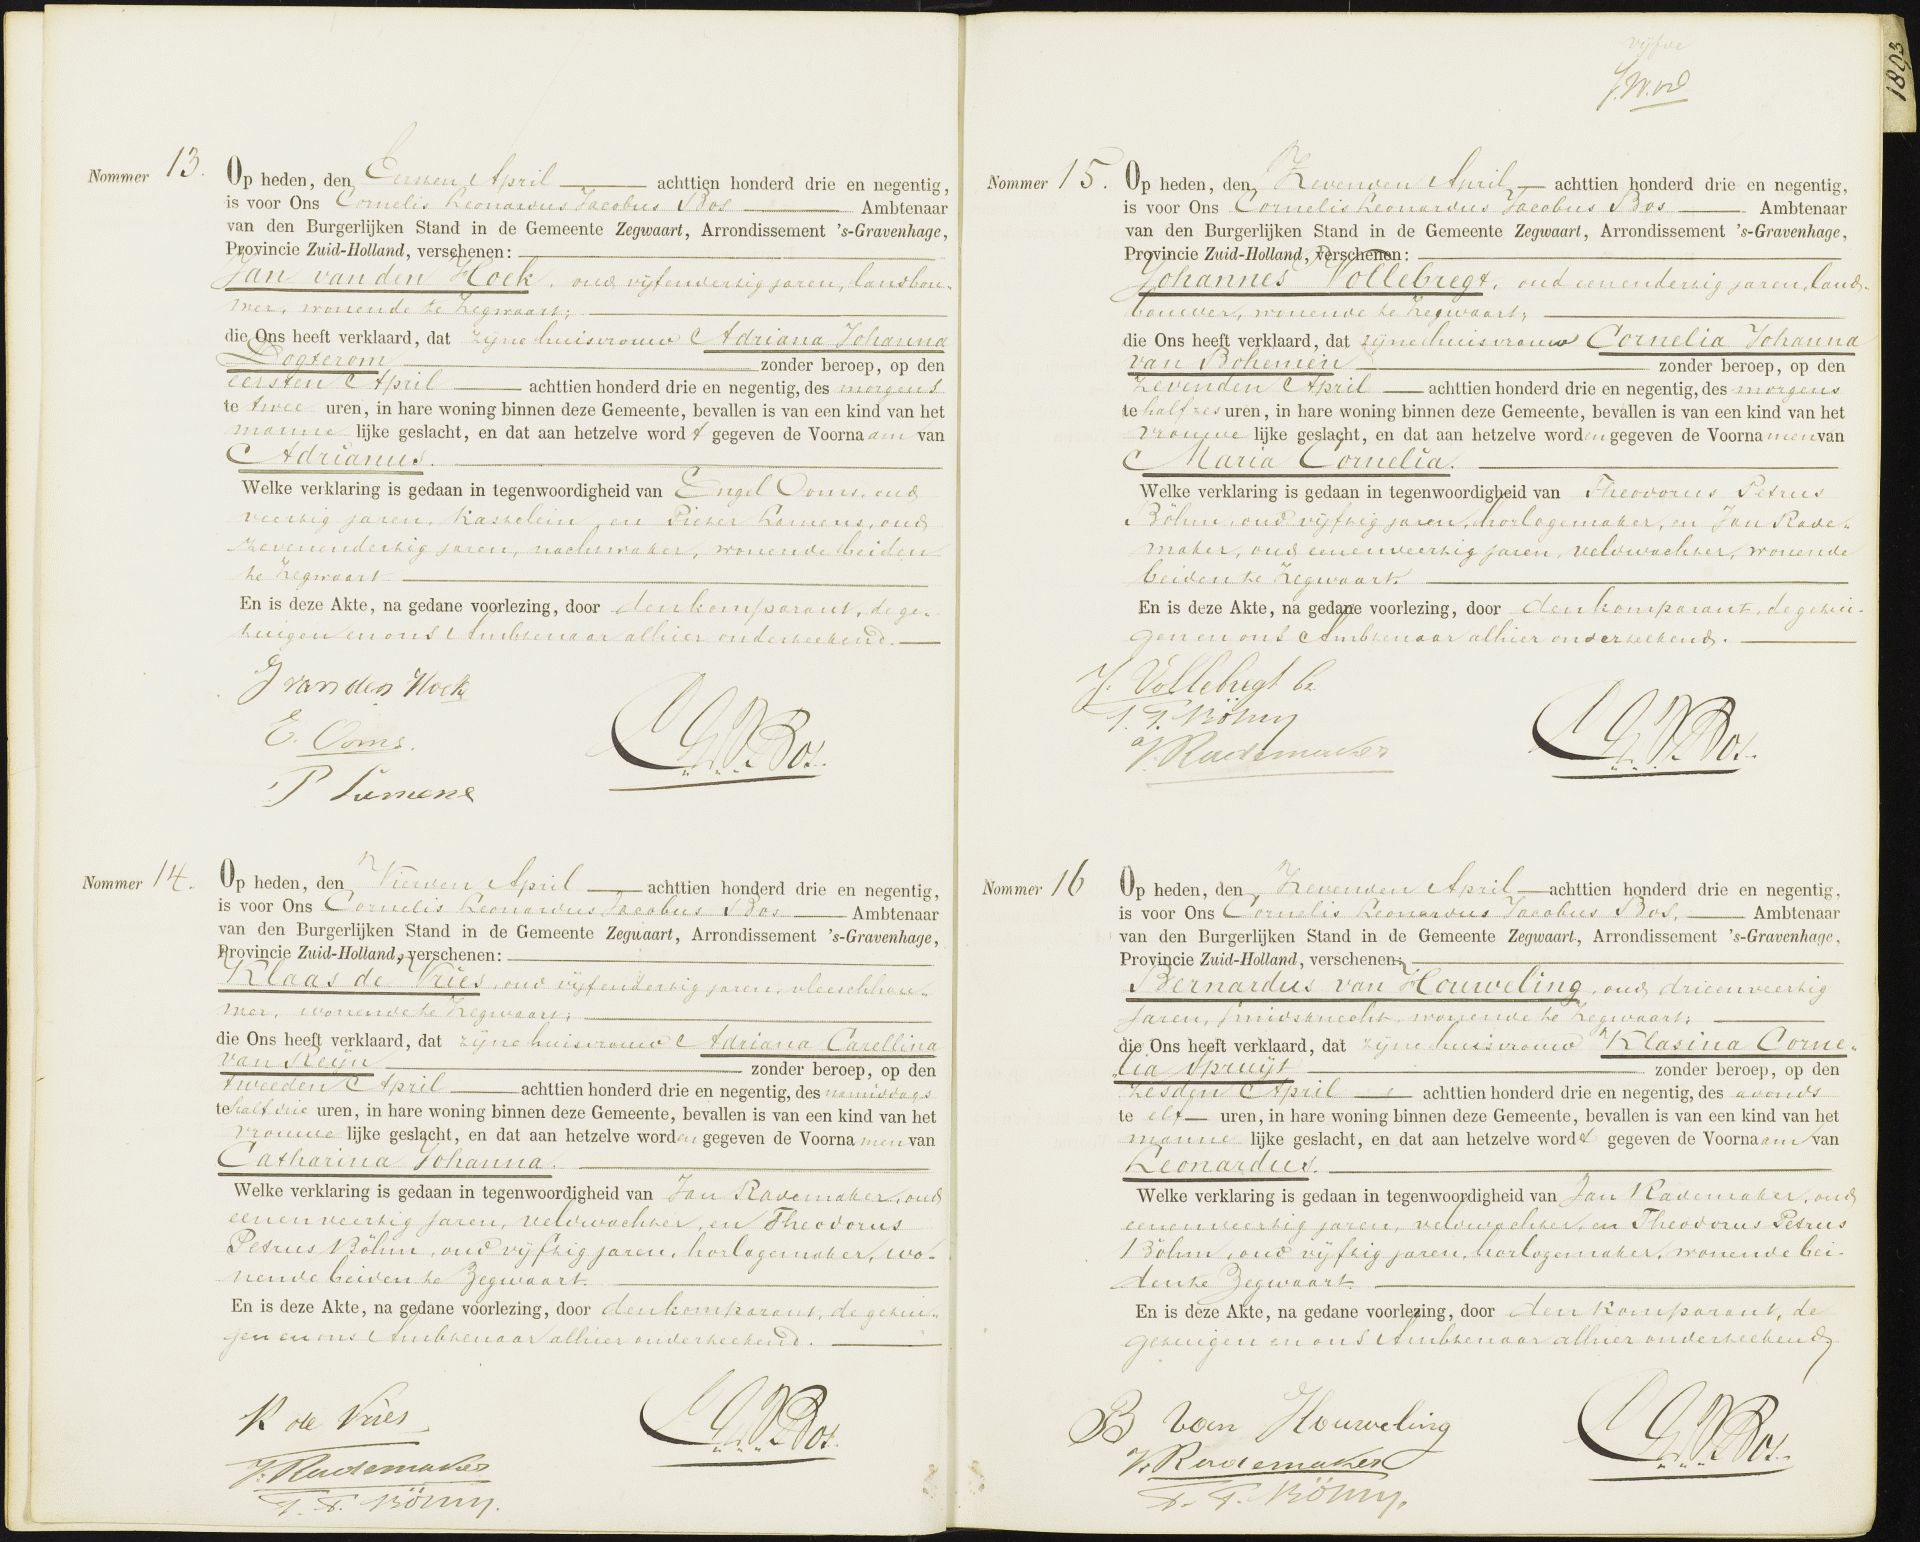 Nommer 13.
Op heden, den Eersten April achttien honderd drie en negentig,
is voor Ons Cornelis Leonardus Jacobus Bos Ambtenaar
van den Burgerlijken Stand in de Gemeente Zegwaart, Arrondissement 's-Gravenhage,
Provincie Zuid-Holland, verschenen:
Jan van den Hoek, oud vijfendertig jaren, landbou-
wer, wonende te Zegwaart;
die Ons heeft verklaard, dat zijne huisvrouw Adriana Johanna
Dogterom zonder beroep, op den
eersten April achttien honderd drie en negentig, des morgens
te twee uren, in hare woning binnen deze Gemeente, bevallen is van een kind van het
manne lijke geslacht, en dat aan hetzelve word t gegeven de Voorna am van
Adrianus.
Welke verklaring is gedaan in tegenwoordigheid van Engel Ooms, oud
veertig jaren, kastelein, en Pieter Lamens, oud
zevenendertig jaren, nachtwaker, wonende beiden
te Zegwaart
En is deze Akte, na gedane voorlezing, door den komparant, de ge-
tuigen en ons Ambtenaar alhier onderteekend.
J van den Hoek
E. Ooms.
CLJ Bos.
Nommer 14.
Op heden, den Vierden April achttien honderd drie en negentig,
is voor Ons Cornelis Leonardus Jacobus Bos Ambtenaar
van den Burgerlijken Stand in de Gemeente Zegwaart, Arrondissement 's-Gravenhage,
Provincie Zuid-Holland, verschenen:
Klaas de Vries, oud vijfendertig jaren, vleeschhou-
wer, wonende te Zegwaart;
die Ons heeft verklaard, dat zijne huisvrouw Adriana Carellina
van Reijn zonder beroep, op den
tweeden April achttien honderd drie en negentig, des namiddags
te half drie uren, in hare woning binnen deze Gemeente, bevallen is van een kind van het
vrouwe lijke geslacht, en dat aan hetzelve word en gegeven de Voorna men van
Catharina Johanna.
Welke verklaring is gedaan in tegenwoordigheid van Jan Rademaker, oud
eenenveertig jaren, veldwachter, en Theodorus
Petrus Böhm, oud vijftig jaren, horlogemaker, wo-
nende beiden te Zegwaart.
En is deze Akte, na gedane voorlezing, door den komparant, de getui-
gen en ons Ambtenaar alhier onderteekend.
K de Vries
J. Rademaker
T. P. Böhm.
CLJ Bos.
vijfde
1893
Nommer 15.
Op heden, den Zevenden April achttien honderd drie en negentig,
is voor Ons Cornelis Leonardus Jacobus Bos Ambtenaar
van den Burgerlijken Stand in de Gemeente Zegwaart, Arrondissement 's-Gravenhage,
Provincie Zuid-Holland, verschenen:
Johannes Vollebregt, oud eenendertig jaren, land-
bouwer, wonende te Zegwaart;
die Ons heeft verklaard, dat zijne huisvrouw Cornelia Johanna
van Bohemen zonder beroep, op den
zevenden April achttien honderd drie en negentig, des morgens
te half zes uren, in hare woning binnen deze Gemeente, bevallen is van een kind van het
vrouwe lijke geslacht, en dat aan hetzelve word en gegeven de Voorna men van
Maria Cornelia.
Welke verklaring is gedaan in tegenwoordigheid van Theodorus Petrus
Böhm, oud vijftig jaren, horlogemaker, en Jan Rade-
maker, oud eenenveertig jaren, veldwachter, wonende
beiden te Zegwaart.
En is deze Akte, na gedane voorlezing, door den komparant, de getui-
gen en ons Ambtenaar alhier onderteekend.
J. Vollebregt
T. P. Böhm
J. Rademaker
CLJ Bos.
Nommer 16
Op heden, den Zevenden April achttien honderd drie en negentig,
is voor Ons Cornelis Leonardus Jacobus Bos, Ambtenaar
van den Burgerlijken Stand in de Gemeente Zegwaart, Arrondissement 's-Gravenhage,
Provincie Zuid-Holland, verschenen:
Bernardus van Houweling, oud drieenveertig
jaren, smidsknecht, wonende te Zegwaart;
die Ons heeft verklaard, dat zijne huisvrouw Klasina Corne-
lia Spruijt zonder beroep, op den
zesden April achttien honderd drie en negentig, des avonds
te elf uren, in hare woning binnen deze Gemeente, bevallen is van een kind van het
manne lijke geslacht, en dat aan hetzelve word t gegeven de Voorna am van
Leonardus.
Welke verklaring is gedaan in tegenwoordigheid van Jan Rademaker, oud
eenenveertig jaren, veldwachter, en Theodorus Petrus
Böhm, oud vijftig jaren, horlogemaker, wonende bei-
den te Zegwaart
En is deze Akte, na gedane voorlezing, door den komparant, de
getuigen en ons Ambtenaar alhier onderteekend
B van Houweling
J. Rademaker
T. P. Böhm.
CLJ Bos.